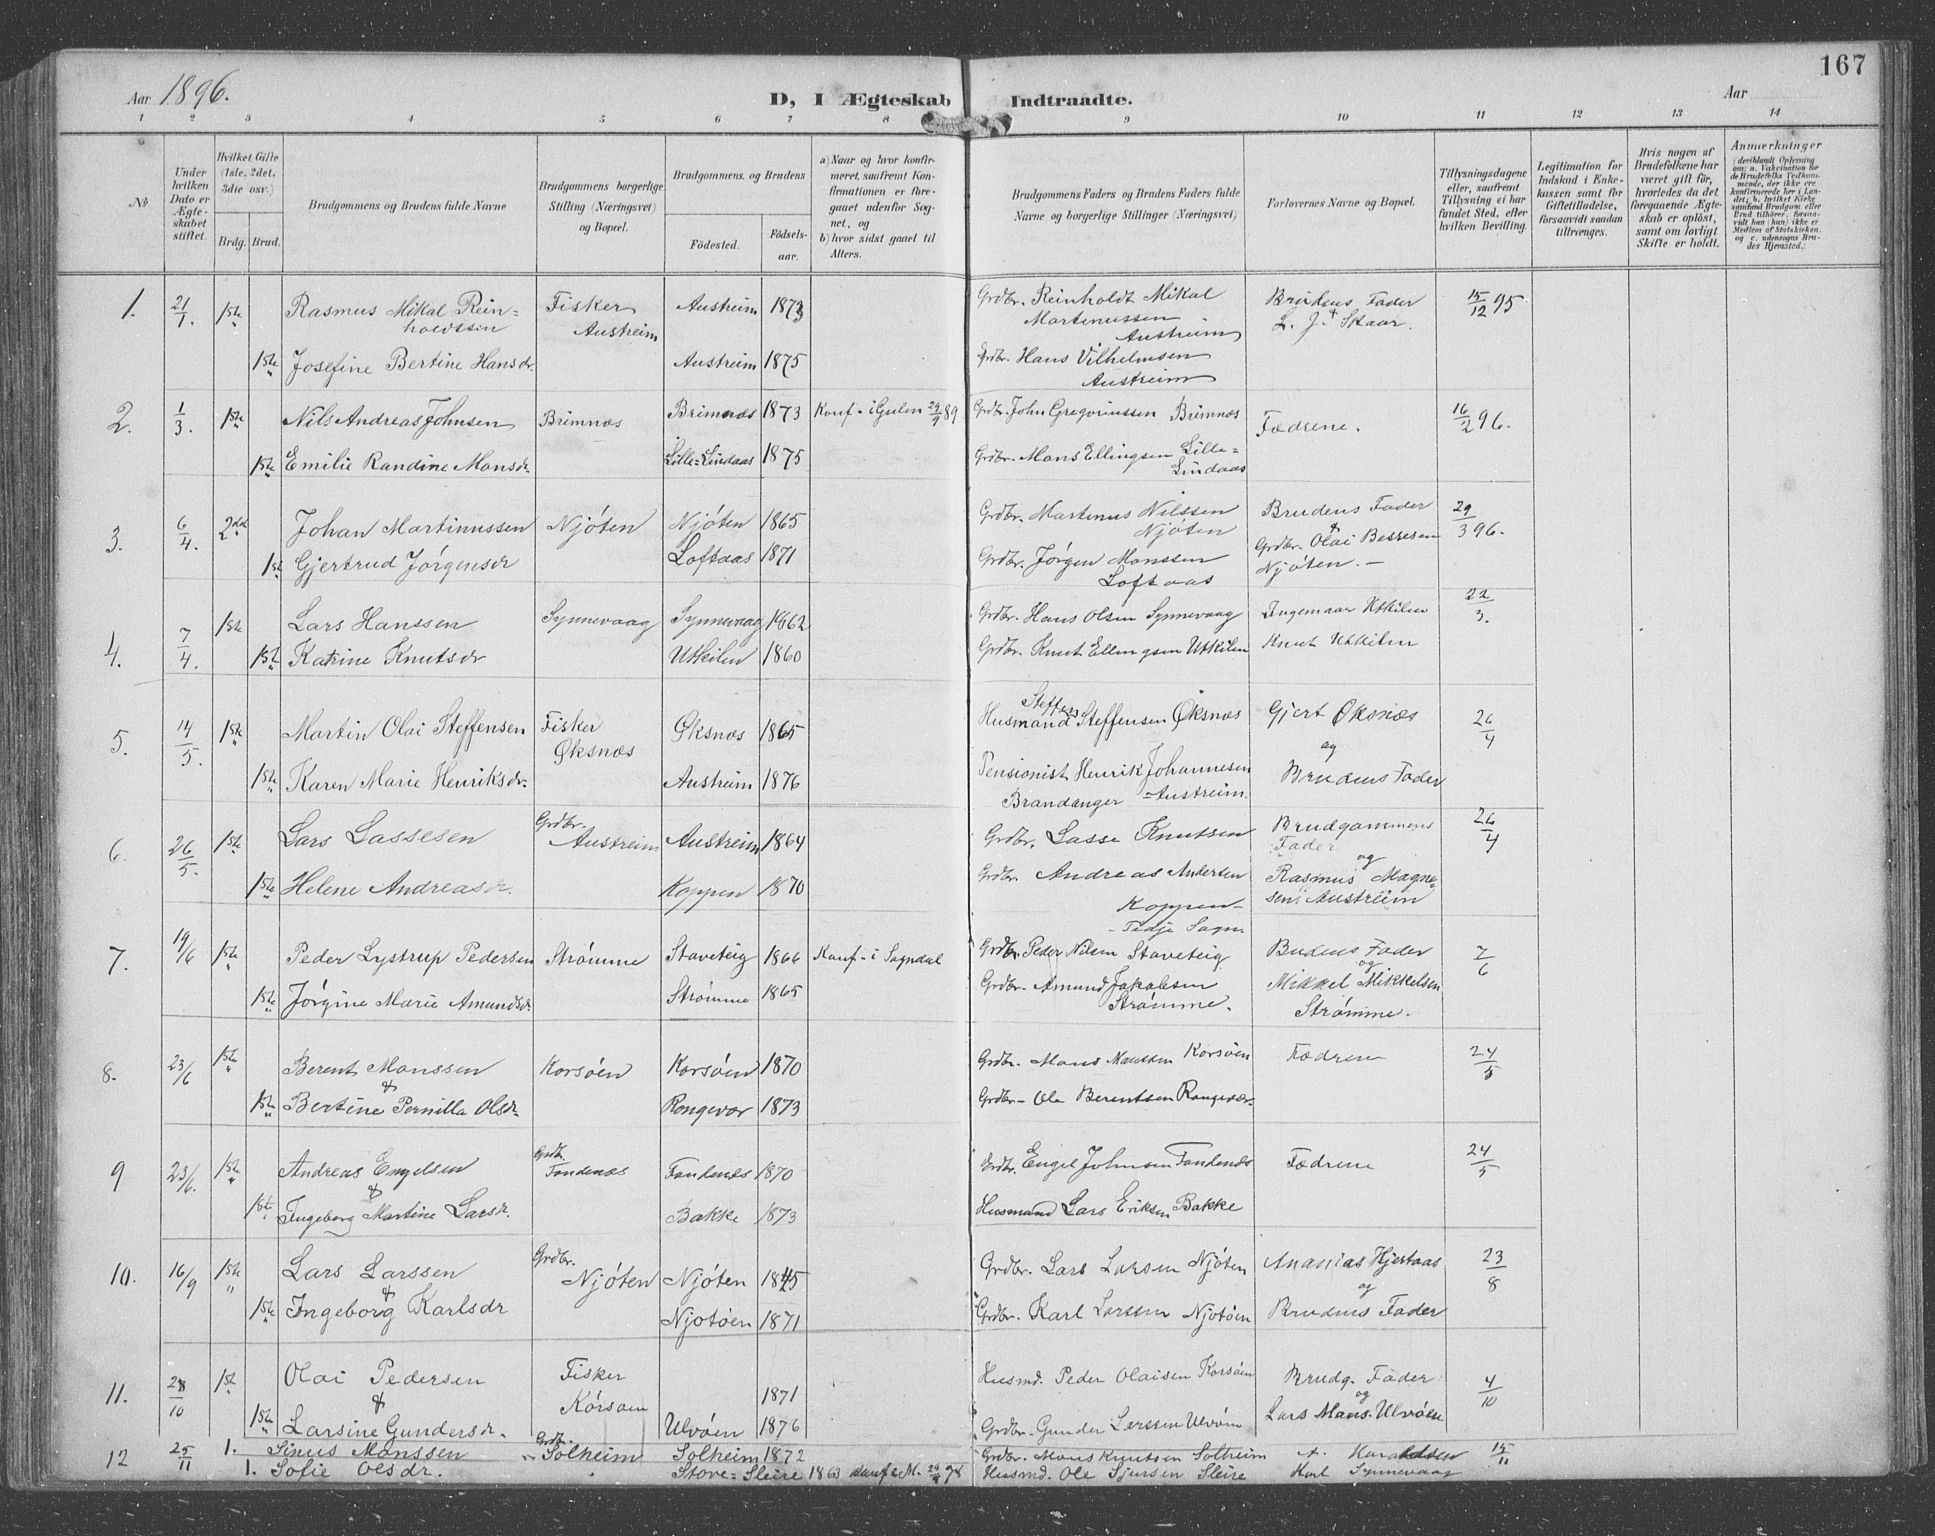 167
Aar 1896.
D, I Ægteskab Indtraadte.
Aar
1 2 3 4 5 6 7 8 9 10 11 12 13 14
No
Under hvilken Dato er Ægteskabet stiftet.
Hvilket Gifte (1ste, 2det, 3die osv.)
Brdg. Brud.
Brudgommens og Brudens fulde Navne
Brudgommens borgerlige Stilling (Næringsvei) og Bopæl.
Brudgommens og Brudens
Födested.
Födsels-aar.
a) Naar og hvor konfirmeret, saafremt Konfirmationen er foregaaet udenfor Sognet, og
b) hvor sidst gaaet til Alters.
Brudgommens Faders og Brudens Faders fulde Navne og borgerlige Stillinger (Næringsvei)
Forlovernes Navne og Bopæl.
Tillysningsdagene eller, saafremt Tillysning ei har fundet Sted, efter hvilken Bevilling.
Legitimation for Indskud i Enkekassen samt for Giftetilladelse, forsaavidt saadan tiltrænges.
Hvis nogen af Brudefolkene har været gift för, hvorledes da det foregaaende Ægteskab er oplöst, samt om lovligt Skifte er holdt.
Anmærkninger
1. 21/1. 1ste Rasmus Mikal Reinholdtsen Fisker Austreim Austreim 1873 Grdbr. Reinholdt Mikal Martinussen Austreim Brudens Fader & L. J. Skaar. 15/12 95
1ste Josefine Bertine Hansdr. Austreim 1875 Grdbr. Hans Vilhelmsen Austreim
2. 1/3. 1ste Nils Andreas Johnsen Brimnæs Brimnæs 1873 Konf. i Gulen 29/9 89 Grdbr. John Gregoriussen Brimnæs Fædrene. 16/2 96.
1ste Emilie Randine Monsdr. Lille-Lindaas 1875 Grdbr. Mons Ellingsen Lille-Lindaas
3. 6/4. 2det Johan Martinussen Njöten Njöten 1865 Grdbr. Martinus Nilssen Njöten Brudens Fader & Grdbr. Olai Bessesen Njöten. 29/3 96.
1ste Gjertrud Jörgensdr Loftaas 1871 Grdbr. Jörgen Monssen Loftaas
4. 7/4. 1ste Lars Hanssen Synnevaag Synnevaag 1862 Grdbr. Hans Olsen Synnevaag Ingemaar Utkilen 22/3.
1ste Katrine Knutsdr Utkilen 1860 Grdbr. Knut Ellingsen Utkilen Knut Utkilen
5. 14/5. 1ste Martin Olai Steffensen Fisker Øksnæs Øksnæs 1865 Husmand Steffen Steffensen Øksnæs Gjert Øksnæs og 26/4
1ste Karen Marie Henriksdr. Austreim 1876 Pensionist Henrik Johannesen Brandanger - Austreim. Brudens Fader
6. 26/5. 1ste Lars Lassesen Grdbr. Austreim Austreim 1864 Grdbr. Lasse Knutsen Brudgommens Fader og 26/4
1ste Helene Andreasdr. Koppen 1870 Grdbr. Andreas Andersen Koppen - Fedje Sogn Rasmus Magnesen Austreim
7. 19/6 1ste Peder Lystrup Pedersen Strömme Staveteig 1866 Konf. i Sogndal Grdbr. Peder Nilsen Staveteig Budens Fader og 7/6
1ste Jörgine Marie Amundsdr. Strömme 1865 Grdbr. Amund Jakobsen Strömme. Mikkel Mikkelsen Strömme.
8. 23/6 1ste Berent Monssen & Korsöen Korsöen 1870 Grdbr. Mons Monssen Korsöen Fædrene 24/5
1ste Bertine Pernilla Olsdr. Rongevær 1873 Grdbr. Ole Berentsen Rongevær.
9 23/6. 1ste Andreas Engelsen & Grdbr. Fondenæs Fondenæs 1870 Grdbr. Engel Johnsen Fondenæs Fædrene 24/5
1ste Ingeborg Martine Larsdr. Bakke 1873 Husmand Lars Eriksen Bakke
10. 16/9 1ste Lars Larssen & Grdbr. Njöten Njöten 1845 Grdbr. Lars Larsen Njöten Ananias Hjertaas og 23/8
1ste Ingeborg Karlsdr Njotöen 1871 Grdbr. Karl Larssen Njotöen Brudens Fader
11. 28/10 1ste Olai Pedersen & Fisker Korsöen 1871 Husmd. Peder Olaisen Korsöen Brudg. Fader og 4/10
1ste Larsine Gundersdr. Ulvöen 1876 Grdbr. Gunder Larssen Ulvöen Lars Mons. Ulvöen
12 25/11 1. Sinus Monssen Grdbr. Solheim Solheim 1872 Grdbr. Mons Knutsen Solheim A. Haraldsen 15/11
1. Sofie Olsdr. Store-Sleire 1863 Husmd. Ole Sjursen Sleire Karl Synnevaag